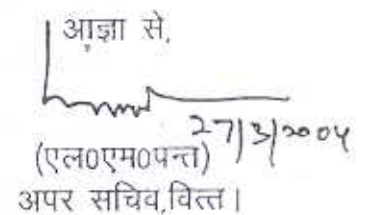 आज्ञा से,
27/3/2004
(एल0एम0पन्त)
अपर सचिव,वित्त।